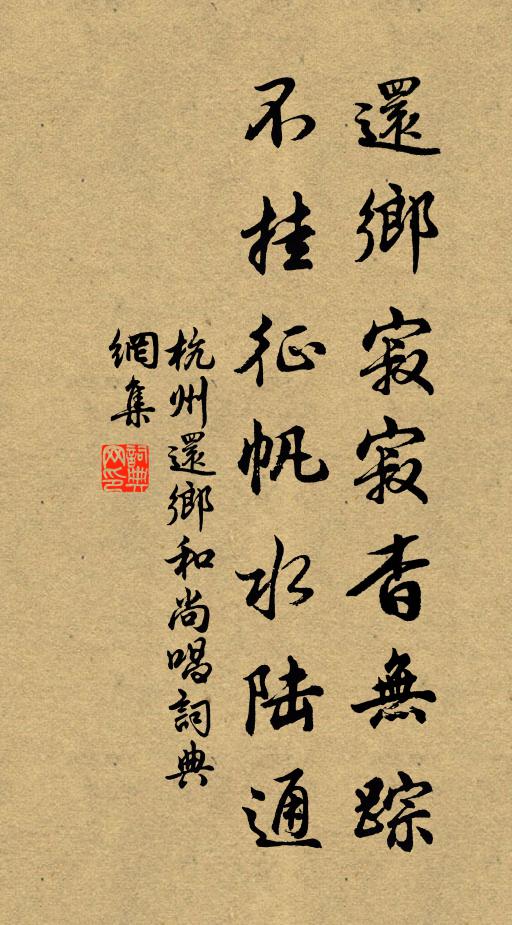 還鄉寂寂杳無踪
不挂征帆水陆通
杭州還鄉和尚唱詞典
網集
詞典
网印